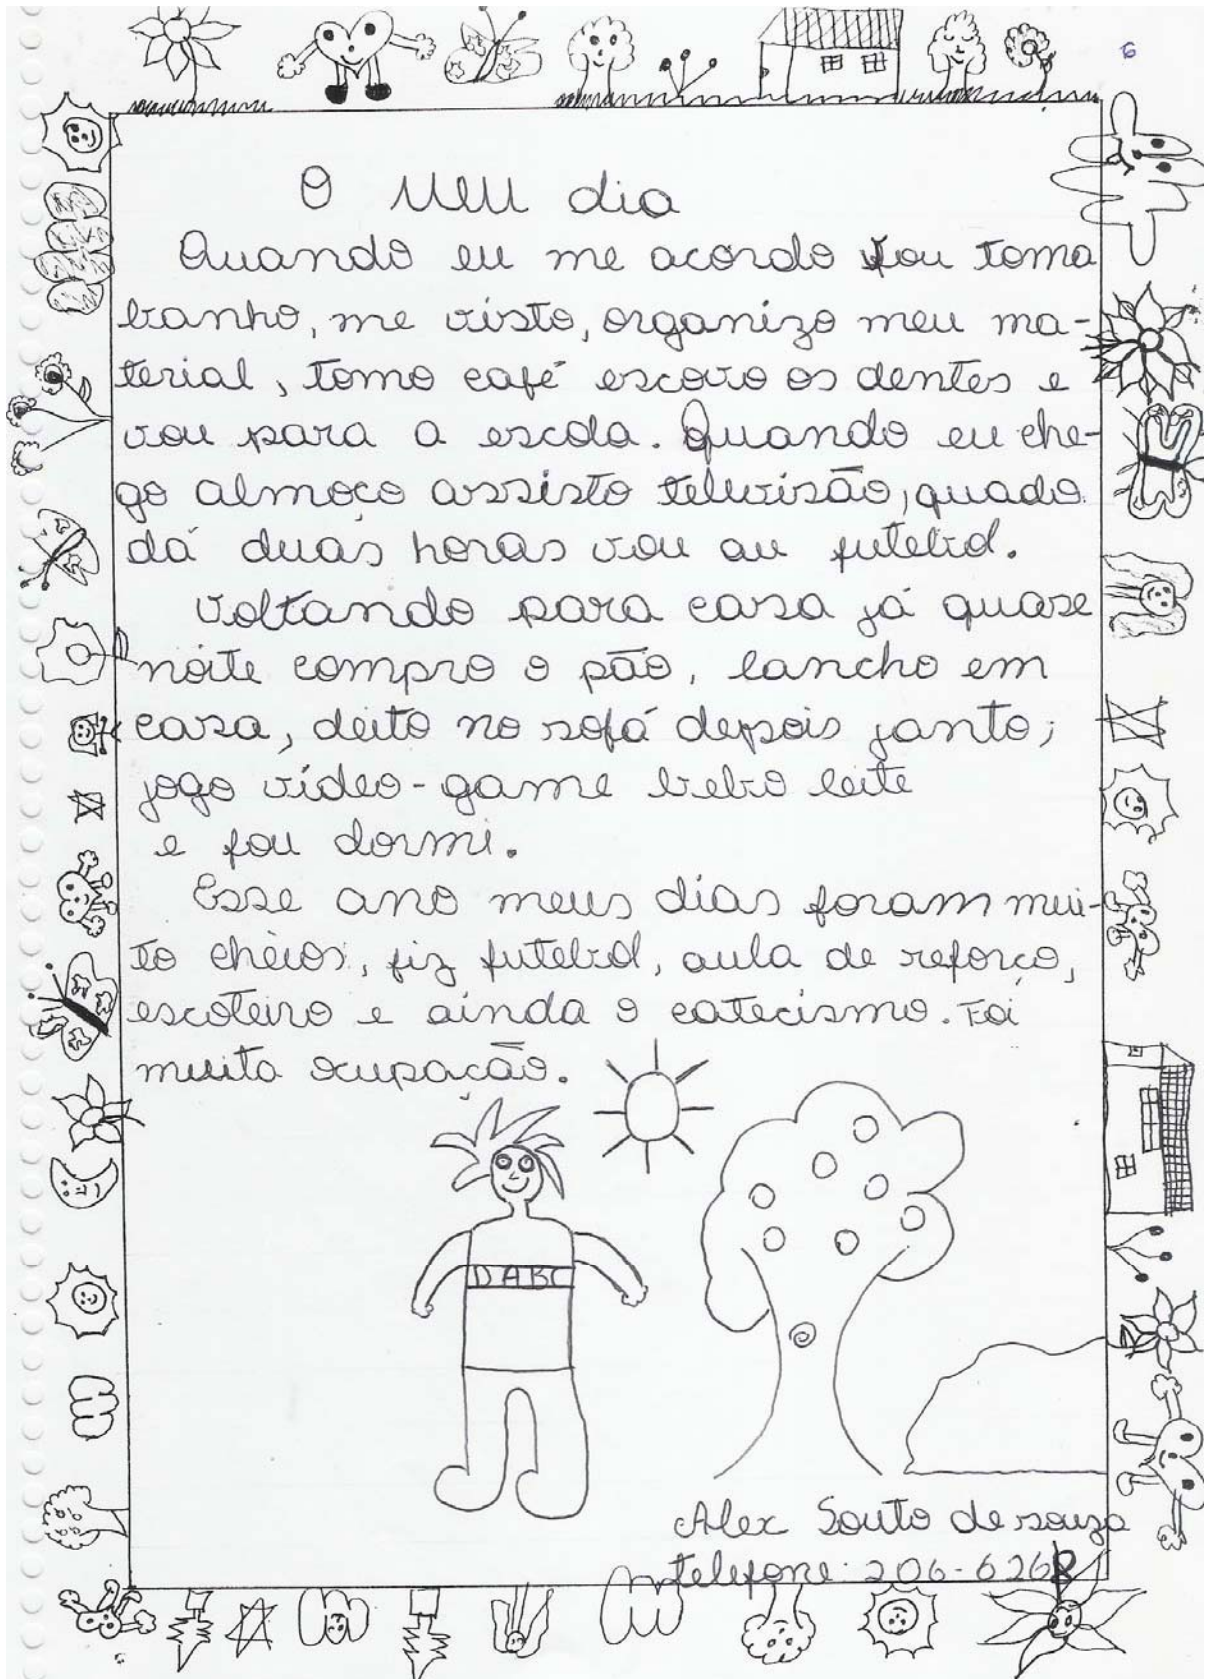 6
O Meu dia
Quando eu me acordo vou toma
banho, me visto, organizo meu ma-
terial, tomo café escovo os dentes e
vou para a escola. Quando eu che-
go almoço assisto televisão, quado
dá duas horas vou au futebol.
Voltando para casa já quase
noite compro o pão, lancho em
casa, deito no sofá depois janto,
jogo vídeo-game bebo leite
e fou dormi.
Esse ano meus dias foram mui-
to cheios, fiz futebol, aula de reforço,
escoteiro e ainda o catecismo. Foi
muita ocupação.
DABC
Alex Souto de souza
telefone: 206-626